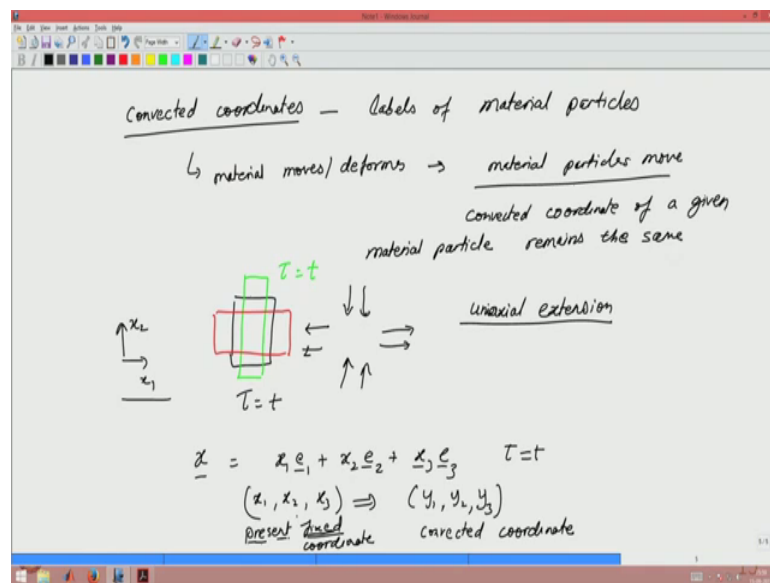 Note1 - Windows Journal
File Edit View Insert Actions Tools Help
Page Width
B I
Convected coordinates - labels of material particles
↳ material moves/deforms → material particles move
convected coordinate of a given
material particle remains the same
τ = t
uniaxial extension
x₂
x₁
τ = t
x = x₁ e₁ + x₂ e₂ + x₃ e₃ τ = t
(x₁, x₂, x₃) ⇒ (y₁, y₂, y₃)
present fixed convected coordinate
coordinate